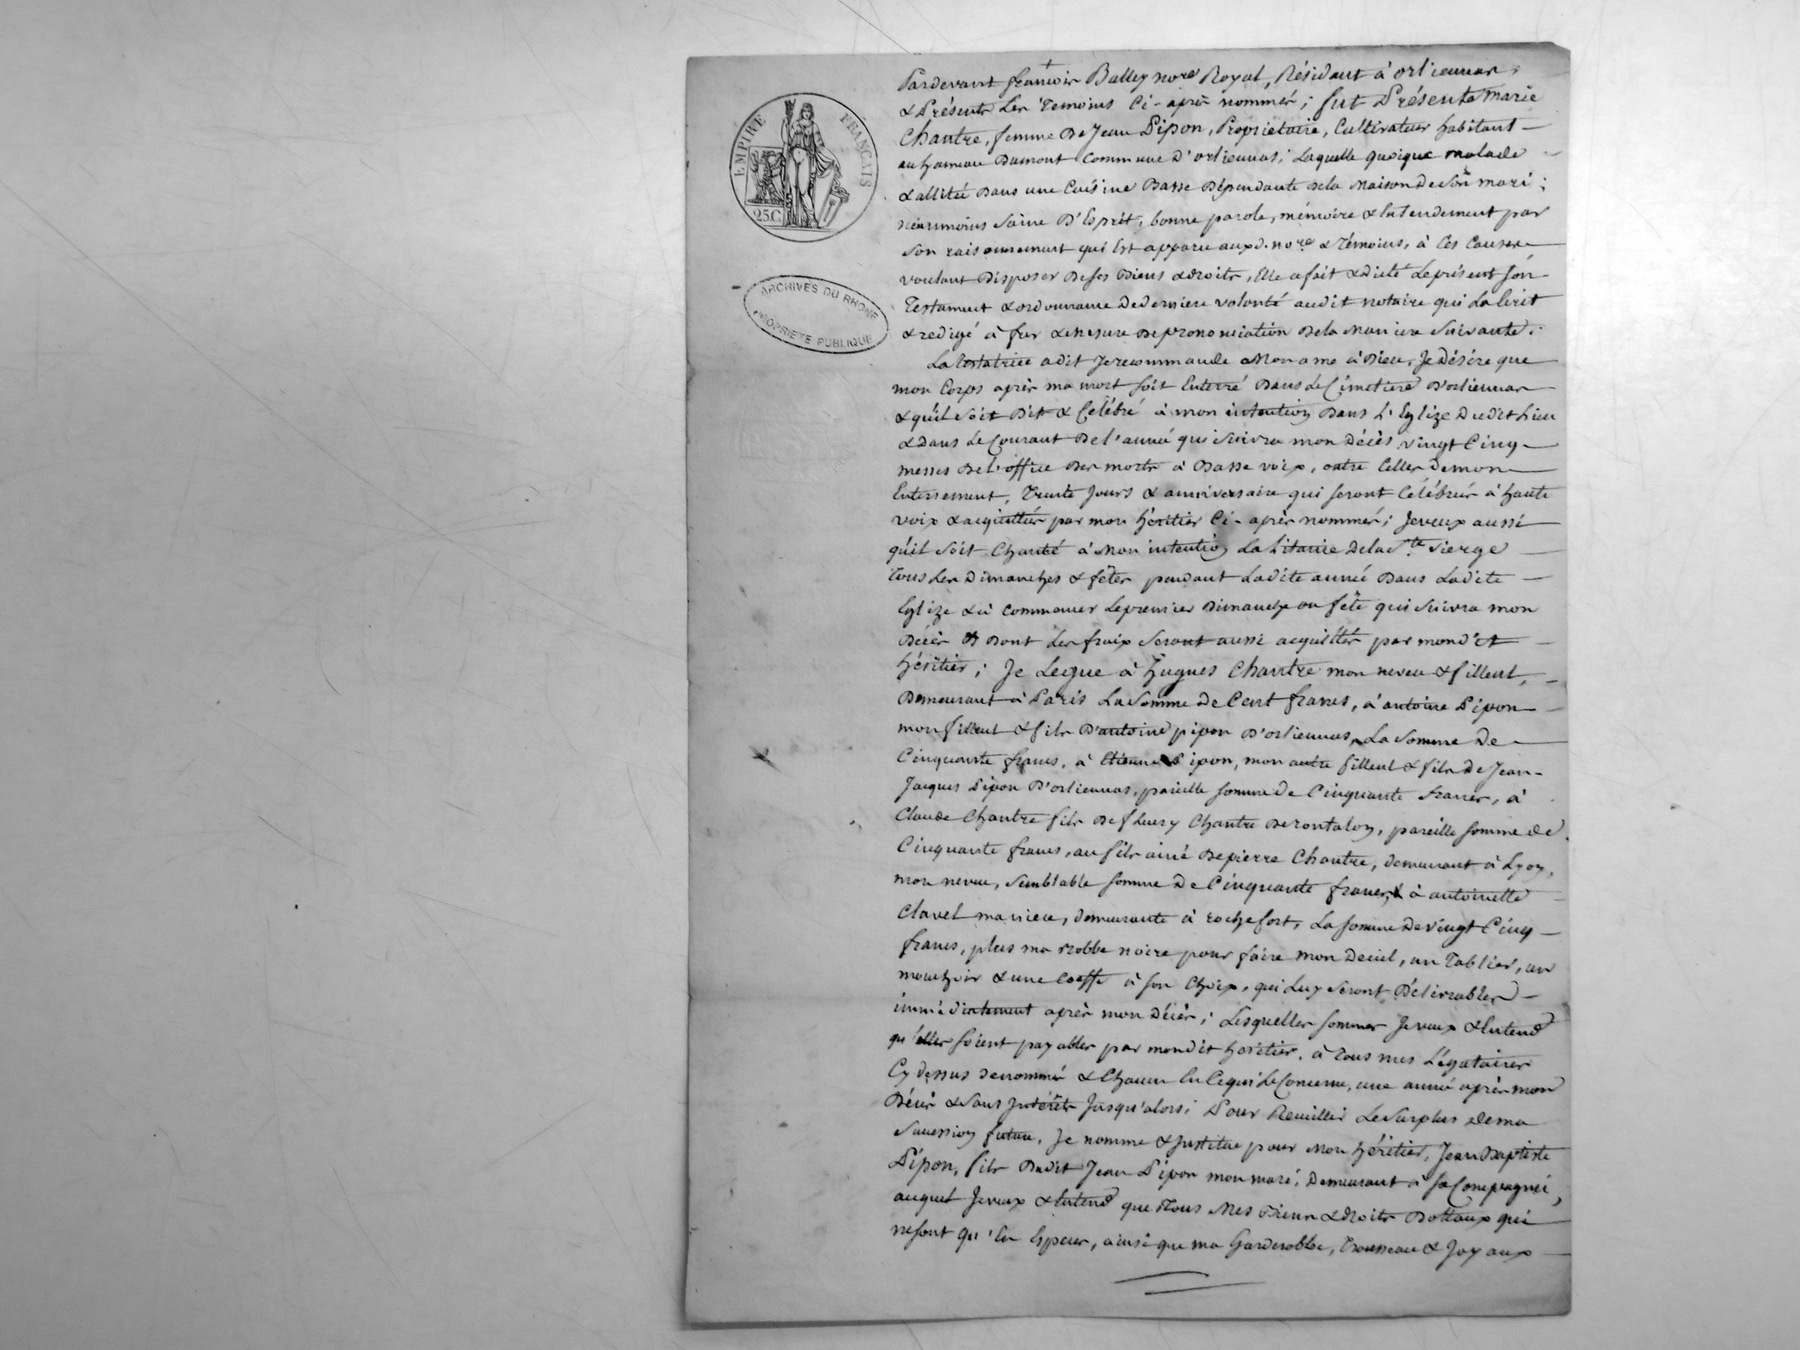 EMPIRE FRANÇAIS
25C
ARCHIVES DU RHONE
PROPRIETE PUBLIQUE
Pardevant francois Balley nore Royal, Résidant à orliennas,
& Présents Les Temoins Ci-après nommés; fut Présente Marie
Chantre, femme De Jean Pipon, Propriétaire, Cultivateur habitant
au hameau Dumont Commune D'orliennas; Laquelle quoique malade
& allitée Dans une Cuisine Basse Dépendante Dela Maison De Son mari;
néanmoins Saine D'Esprit, bonne parole, mémoire & Entendement par
Son raisonnement qui Est apparu auxd. nore & Témoins, à Ces Causes
voulant Disposer De Ses Biens & droits, Elle a fait & dicté Le présent Son
Testament & ordonnance De derniere volonté audit notaire qui La Ecrit
& redigé à fur & mesure De prononciation De la Maniere Suivante.:
La testatrice a dit Je recommande Mon ame à Dieu, Je Désire que
mon Corps après ma mort Soit Enterré Dans Le Cimetiere D'orliennas
& qu'il Soit Dit & Célébré à mon intention Dans L'Eglize Dudit Lieu
& Dans Le Courant De l'année qui Suivra mon Décès vingt Cinq
messes De L'office Des morts à Basse voix, outre Celles de mon
Enterrement, Trente Jours & anniversaire qui Seront Célébrés à haute
voix & acquittés par mon héritier Ci-après nommé; Je veux aussi
qu'il Soit Chanté à Mon intention La Litanie De la Ste. vierge
Tous Les Dimanches & fêtes pendant Ladite année Dans Ladite
Eglize & à Commencer Le premier Dimanche ou fête qui Suivra mon
Décès Dont Les fraix Seront aussi acquittés par mondit
héritier; Je Legue à Hugues Chantre mon neveu & filleul,
Demeurant à Paris La Somme de Cent francs, à antoine Pipon
mon filleul & fils D'antoine pipon D'orliennas, La Somme De
Cinquante francs, à Etienne Pipon, mon autre filleul & fils De Jean-
Jacques Pipon D'orliennas, pareille Somme de Cinquante francs, à
Claude Chantre fils De fleury Chantre De rontalon, pareille Somme de
Cinquante francs, au fils ainé De pierre Chantre, demeurant à Lyon,
mon neveu, Semblable Somme De Cinquante francs, & à antoinette
Clavel ma niece, demeurante à rochefort, La Somme De vingt Cinq
francs, plus ma robbe noire pour faire mon Deuil, un Tablier, un
mouchoir & une Coeffe à Son Choix, qui Luy Seront Délivrables
immédiatement après mon Décès; Lesquelles Sommes Je veux & Entend
qu'elles Soient payables par mondit héritier, à Tous mes Légataires
Cy dessus dénommés & Chacun En Ce qui Le Concerne, une année après mon
Décès & Sans Intérêts Jusqu'alors; Pour Recueillir Le Surplus de ma
Succession future, Je nomme & Institue pour Mon héritier, Jean Baptiste
Pipon, fils Dudit Jean Pipon mon mari, Demeurant à Sa Compagnie,
auquel Je veux & Entend que Tous Mes Biens & droits Dottaux qui
ne Sont qu'En Especes, ainsi que ma Garderobbe, Trousseau & Joyaux